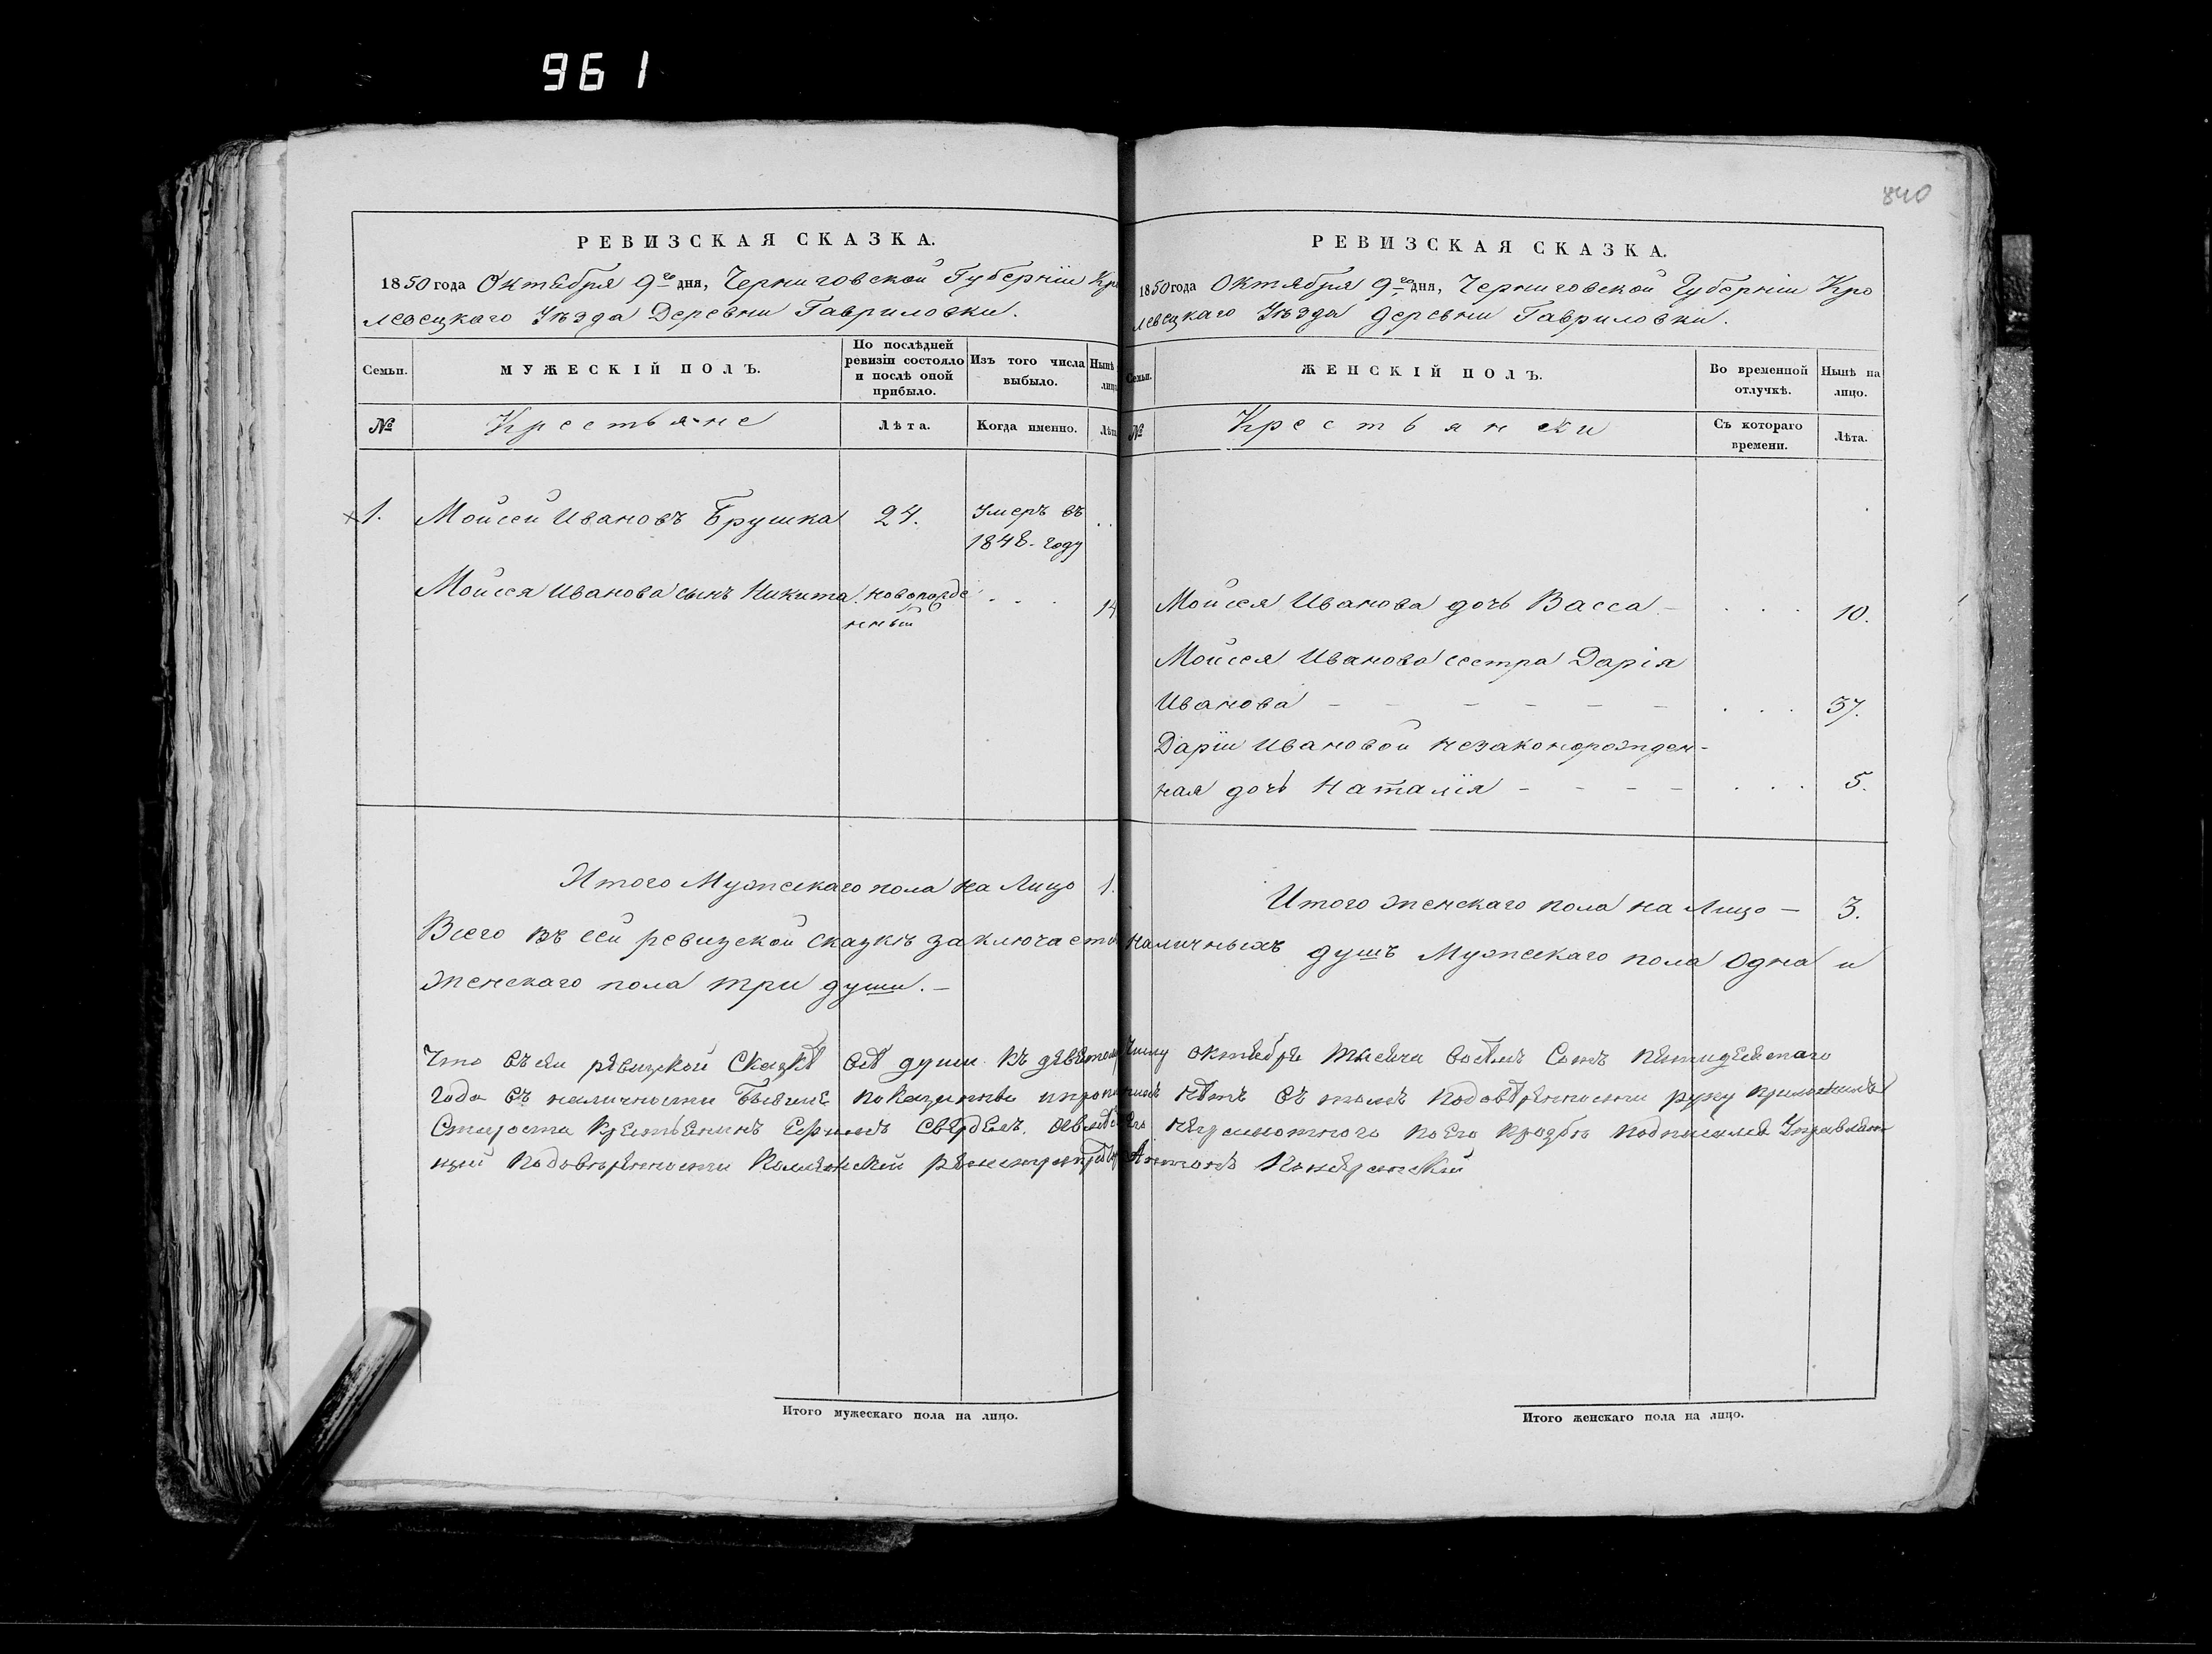 961
840
РЕВИЗСКАЯ СКАЗКА.
1850 года Октября 9го дня, Черниговской Губерніи Кро
левецкаго Уѣзда Деревни Гавриловки.
Семьи.
МУЖЕСКІЙ ПОЛЪ.
По послѣдней ревизіи состояло и послѣ оной прибыло.
Изъ того числа выбыло.
Нынѣ лицо
№
Крестьяне
Лѣта.
Когда именно.
Лѣта
1. Мойсей Ивановъ Брушка 24. Умеръ въ
1848. году
Мойсея Иванова сынъ Никита. новорожде
нный 14
Итого Мужескаго пола на Лицо 1.
РЕВИЗСКАЯ СКАЗКА.
1850 года Октября 9го дня, Черниговской Губерніи Кро
левецкаго Уѣзда деревни Гавриловки.
Семьи.
ЖЕНСКІЙ ПОЛЪ.
Во временной отлучкѣ.
Нынѣ на лицо.
№
Крестьянки
Съ котораго времени.
Лѣта.
Мойсея Иванова дочь Васса – . . . 10.
Мойсея Иванова сестра Дарія
Иванова – – – – – – . . . 37.
Даріи Ивановой незаконорожден-
ная дочь Наталія – – – – . . . 5.
Итого женскаго пола на Лицо – 3.
Всего въ сей ревизской сказкѣ заключается наличныхъ душъ Мужескаго пола Одна и
женскаго пола три души. –
Что въ сей ревизкой Сказкѣ всѣ души къ девятому числу октября тысяча восемъ Сотъ пятидесятаго
года въ наличности бывшие показанны и прописныхъ нѣтъ въ томъ подовѣренности руку приложилъ
Староста Крестьянинъ неграмотного по его прозбѣ подписался Управляю
щий Подовѣренности Антонъ
Итого мужескаго пола на лицо.
Итого женскаго пола на лицо.